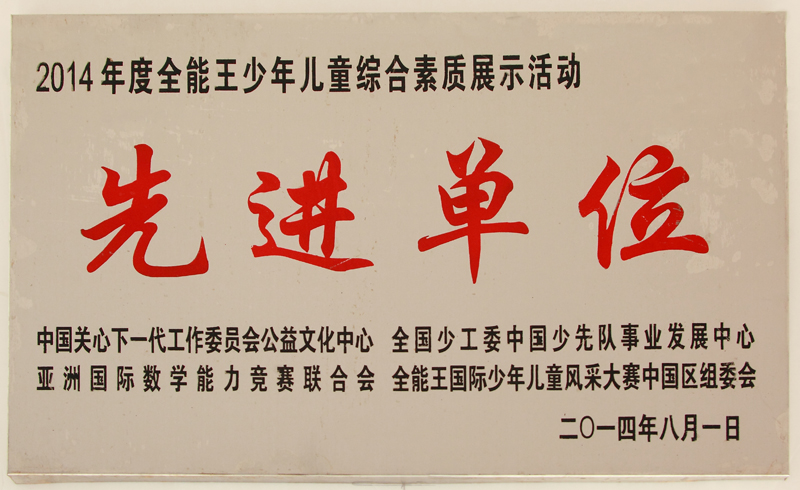 2014年度全能王少年儿童综合素质展示活动
先进单位
中国关心下一代工作委员会公益文化中心 全国少工委中国少先队事业发展中心
亚洲国际数学能力竞赛联合会 全能王国际少年儿童风采大赛中国区组委会
二〇一四年八月一日